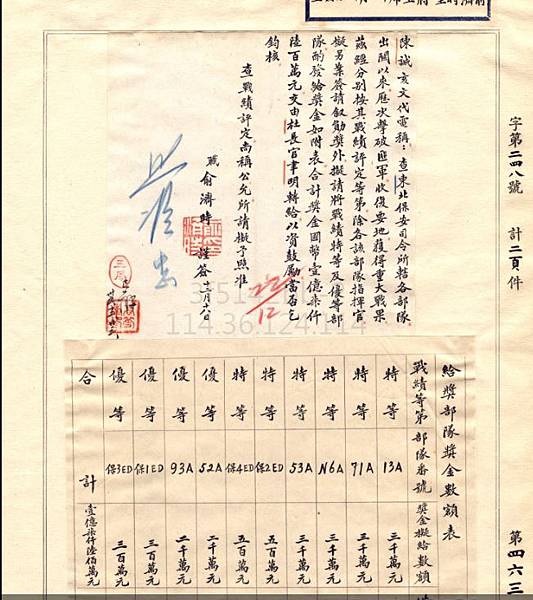 字第二四八號
計二頁件
第四六三
陳誠亥文代電稱：查東北保安司令所轄各部隊
出關以來歷次擊破匪軍收復要地獲得重大戰果
茲經分別按其戰績評定等第除各該部隊指揮官
擬另案簽請敘勛獎外擬請將戰績特等及優等部
隊酌發給獎金如附表合計獎金國幣壹億柒仟
陸百萬元交由杜長官聿明轉給以資鼓勵當否乞
鈞核
查戰績評定尚稱公允所請擬予照准
職俞濟時謹簽十二月十八日
照准
3/514
114.36.124.114
給獎部隊獎金數額表
戰績等第 部隊番號 獎金擬給數額
特等 13A 三千萬元
特等 71A 三千萬元
特等 N6A 三千萬元
特等 53A 三千萬元
特等 保2ED 五百萬元
特等 保4ED 五百萬元
優等 52A 二千萬元
優等 93A 二千萬元
優等 保1ED 三百萬元
優等 保3ED 三百萬元
合計 壹億柒仟陸佰萬元